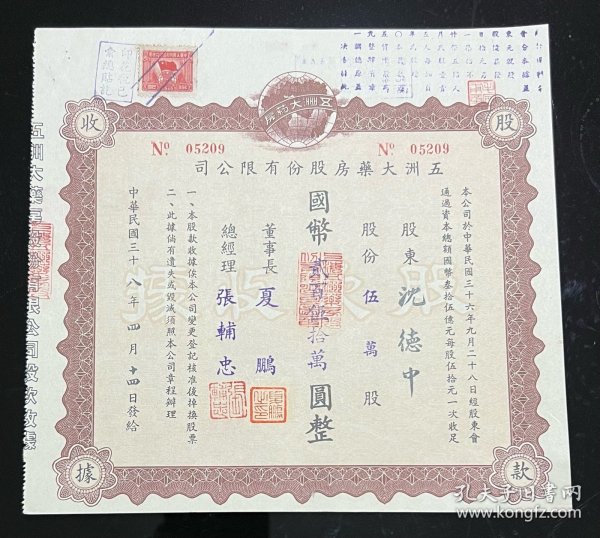 五洲大藥房
股
款
收
據
No. 05209
No. 05209
五洲大藥房股份有限公司
本公司於中華民國三十六年九月二十八日經股東會
通過資本總額國幣叁拾伍億元每股伍拾元一次收足
股東 沈德中
股份 伍萬股
國幣 貳百伍拾萬 圓整
董事長 夏鵬
總經理 張輔忠
一、本股款收據俟本公司變更登記核准後掉換股票
二、此據倘有遺失或毀滅須照本公司章程辦理
中華民國三十八年四月十四日發給
五洲大藥房股份有限公司股款收據
孔夫子旧书网
www.kongfz.com